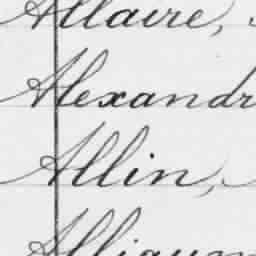 Allaire,
Alexandr
Allin,
Alliaum